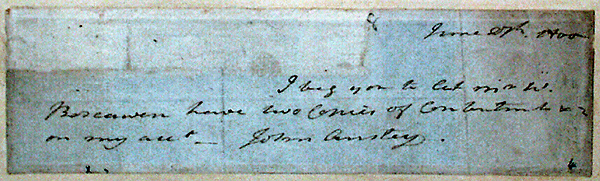 June 1800
I beg you to let Mr W.
Boscawen have two Copies of Contentment &c
on my acct — John Anstey.